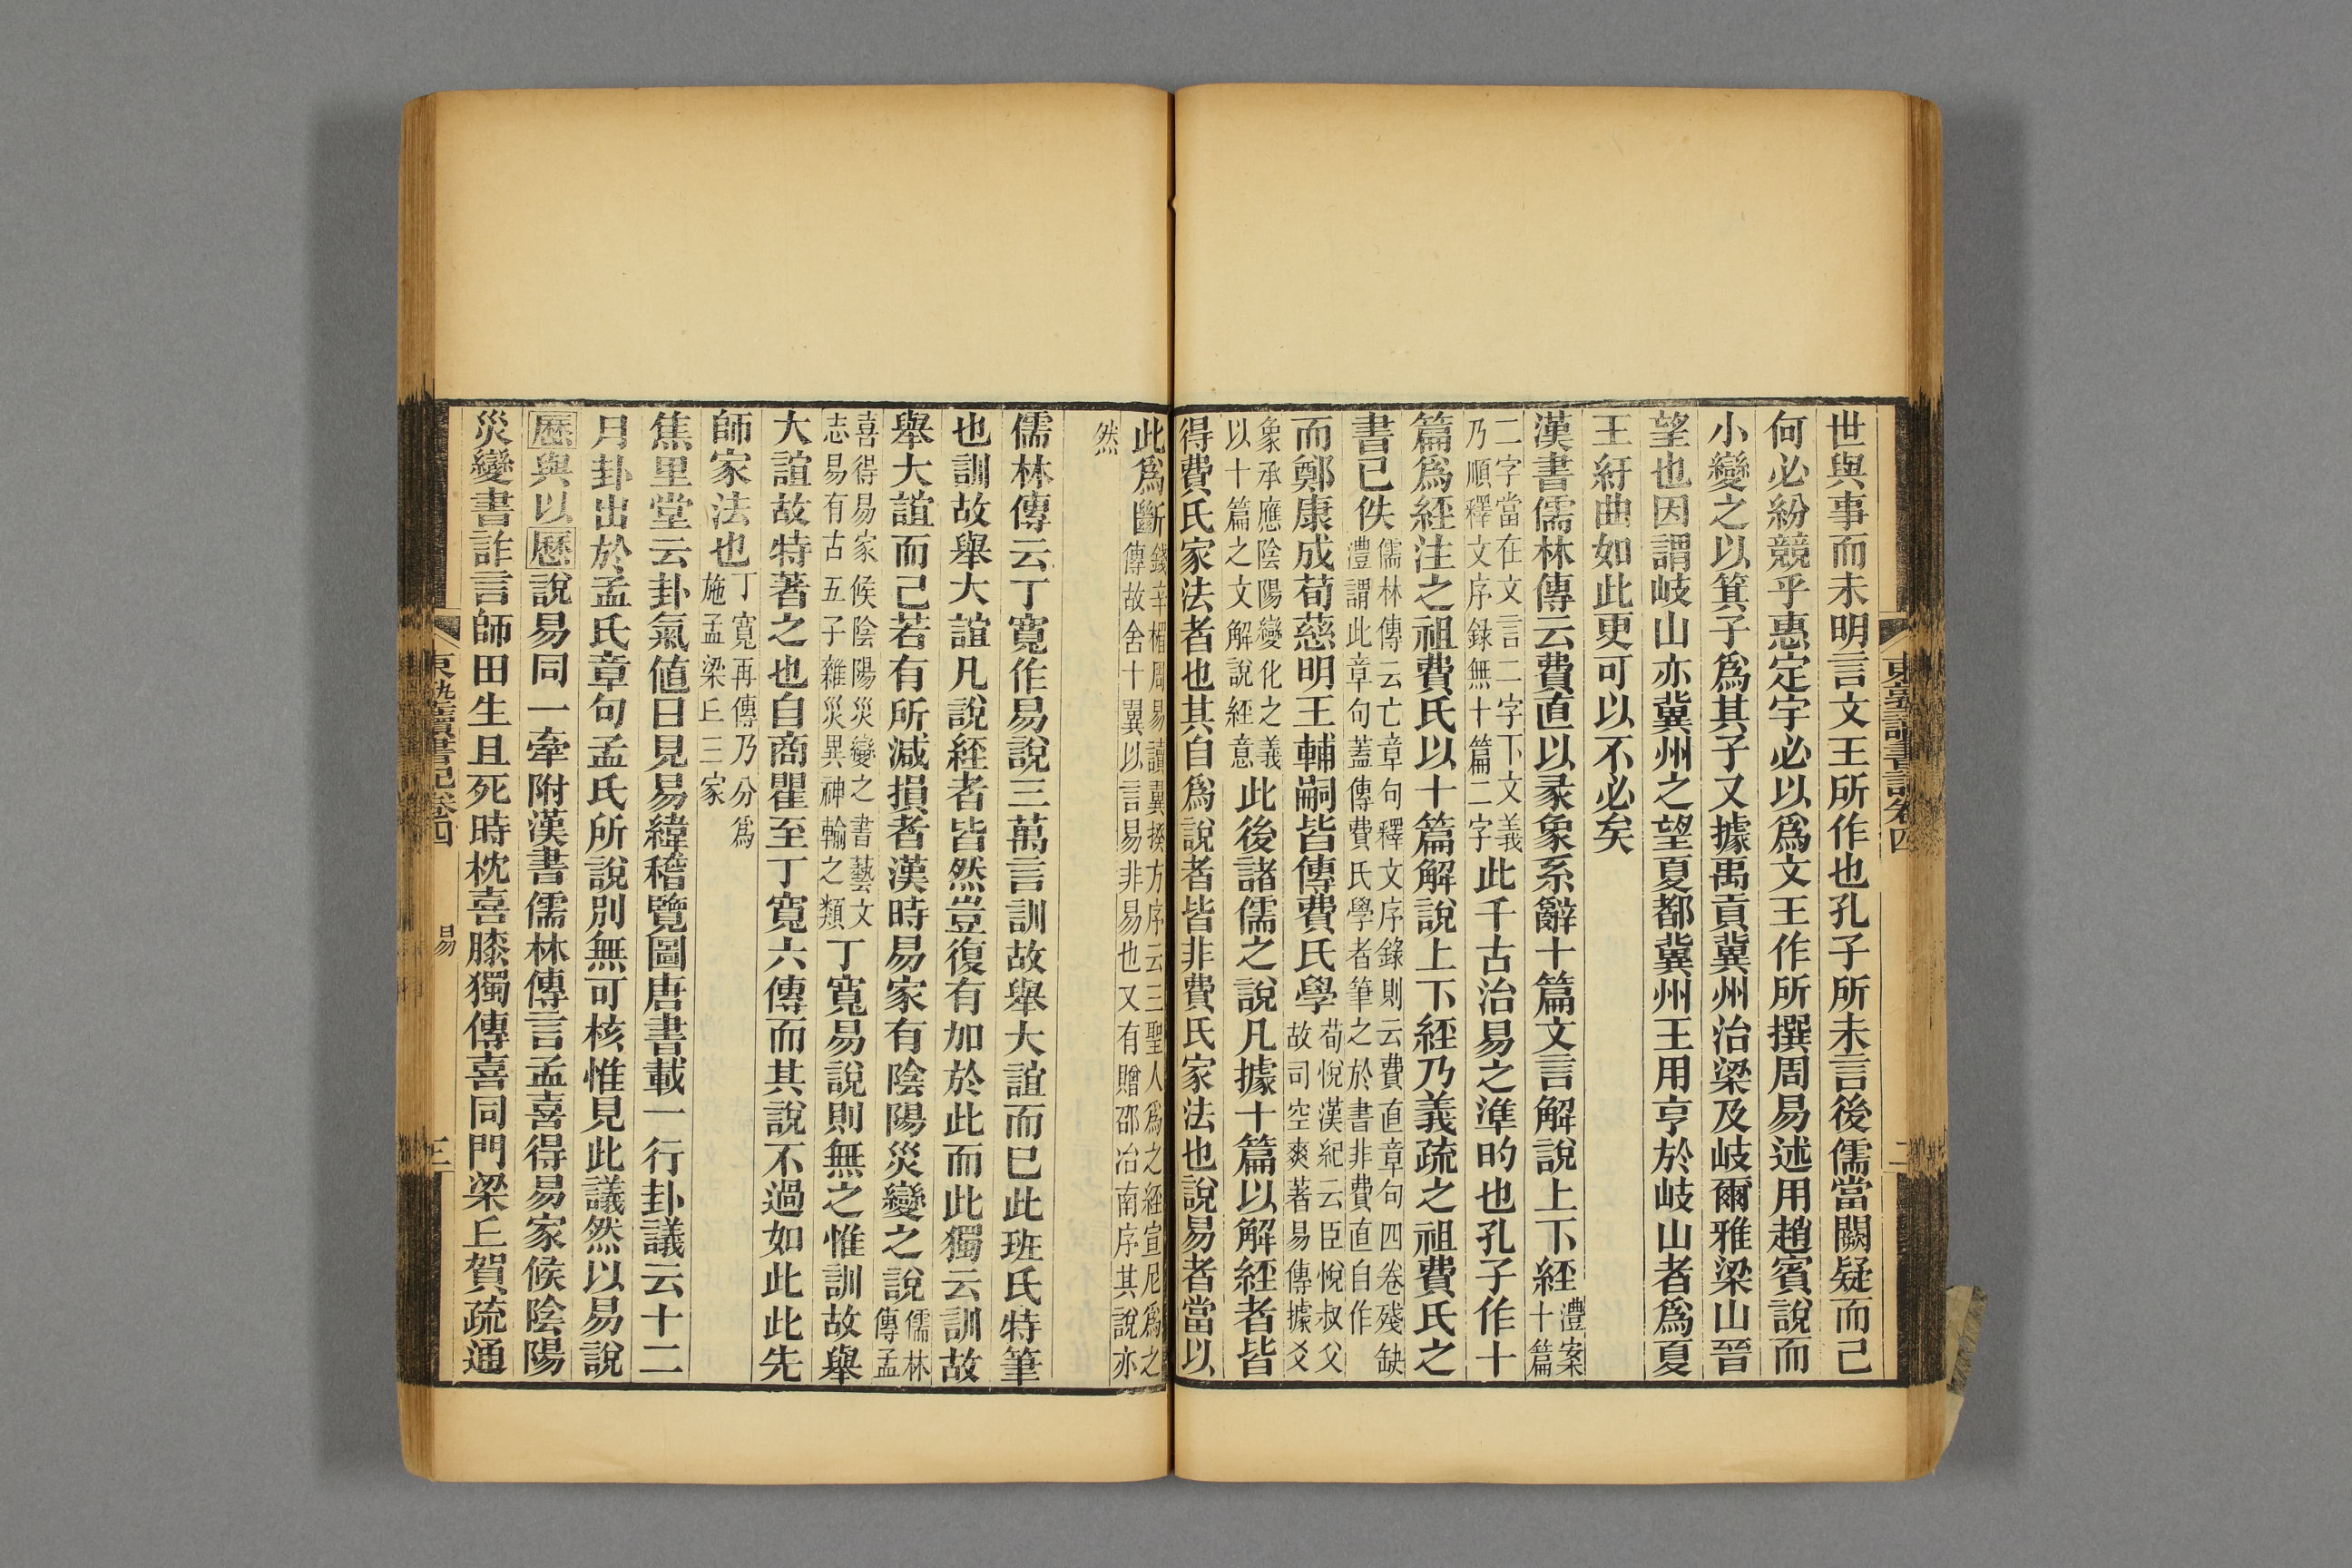 世與事而未明言文王所作也孔子所未言後儒當闕疑而己
何必紛競乎惠定宇必以爲文王作所撰周易述用趙賓說而
小變之以箕子爲其子又據禹貢冀州治梁及岐爾雅梁山晉
望也因謂岐山亦冀州之望夏都冀州王用亨於岐山者爲夏
王紆曲如此更可以不必矣
漢書儒林傳云費直以彖象系辭十篇文言解說上下經
澧案
十篇
二字當在文言二字下文義
乃順釋文序録無十篇二字
此千古治易之準的也孔子作十
篇爲經注之祖費氏以十篇解說上下經乃義疏之祖費氏之
書已佚
儒林傳云亡章句釋文序錄則云費直章句四卷殘缺
澧謂此章句蓋傳費氏學者筆之於書非費直自作
而鄭康成荀慈明王輔嗣皆傳費氏學
荀悅漢紀云臣悅叔父
故司空爽著易傳據爻
象承應陰陽變化之義
以十篇之文解說經意
此後諸儒之說凡據十篇以解經者皆
得費氏家法者也其自爲說者皆非費氏家法也說易者當以
此爲斷
錢辛楣周易讀翼揆方序云三聖人爲之經宣尼爲之
傳故舍十翼以言易非易也又有贈邵冶南序其說亦
然
儒林傳云丁寬作易說三萬言訓故舉大誼而已此班氏特筆
也訓故舉大誼凡說經者皆然豈復有加於此而此獨云訓故
舉大誼而己若有所減損者漢時易家有陰陽災變之說
儒林
傳孟
喜得易家候陰陽災變之書藝文
志易有古五子雜災異神輸之類
丁寬易說則無之惟訓故舉
大誼故特著之也自商瞿至丁寬六傳而其說不過如此此先
師家法也
丁寬再傳乃分爲
施孟梁丘三家
焦里堂云卦氣値日見易緯稽覽圖唐書載一行卦議云十二
月卦出於孟氏章句孟氏所說別無可核惟見此議然以易說
歷與以歷說易同一牽附漢書儒林傳言孟喜得易家候陰陽
災變書詐言師田生且死時枕喜膝獨傳喜同門梁丘賀疏通
東塾讀書記卷四
二
東塾讀書記卷四
易
三